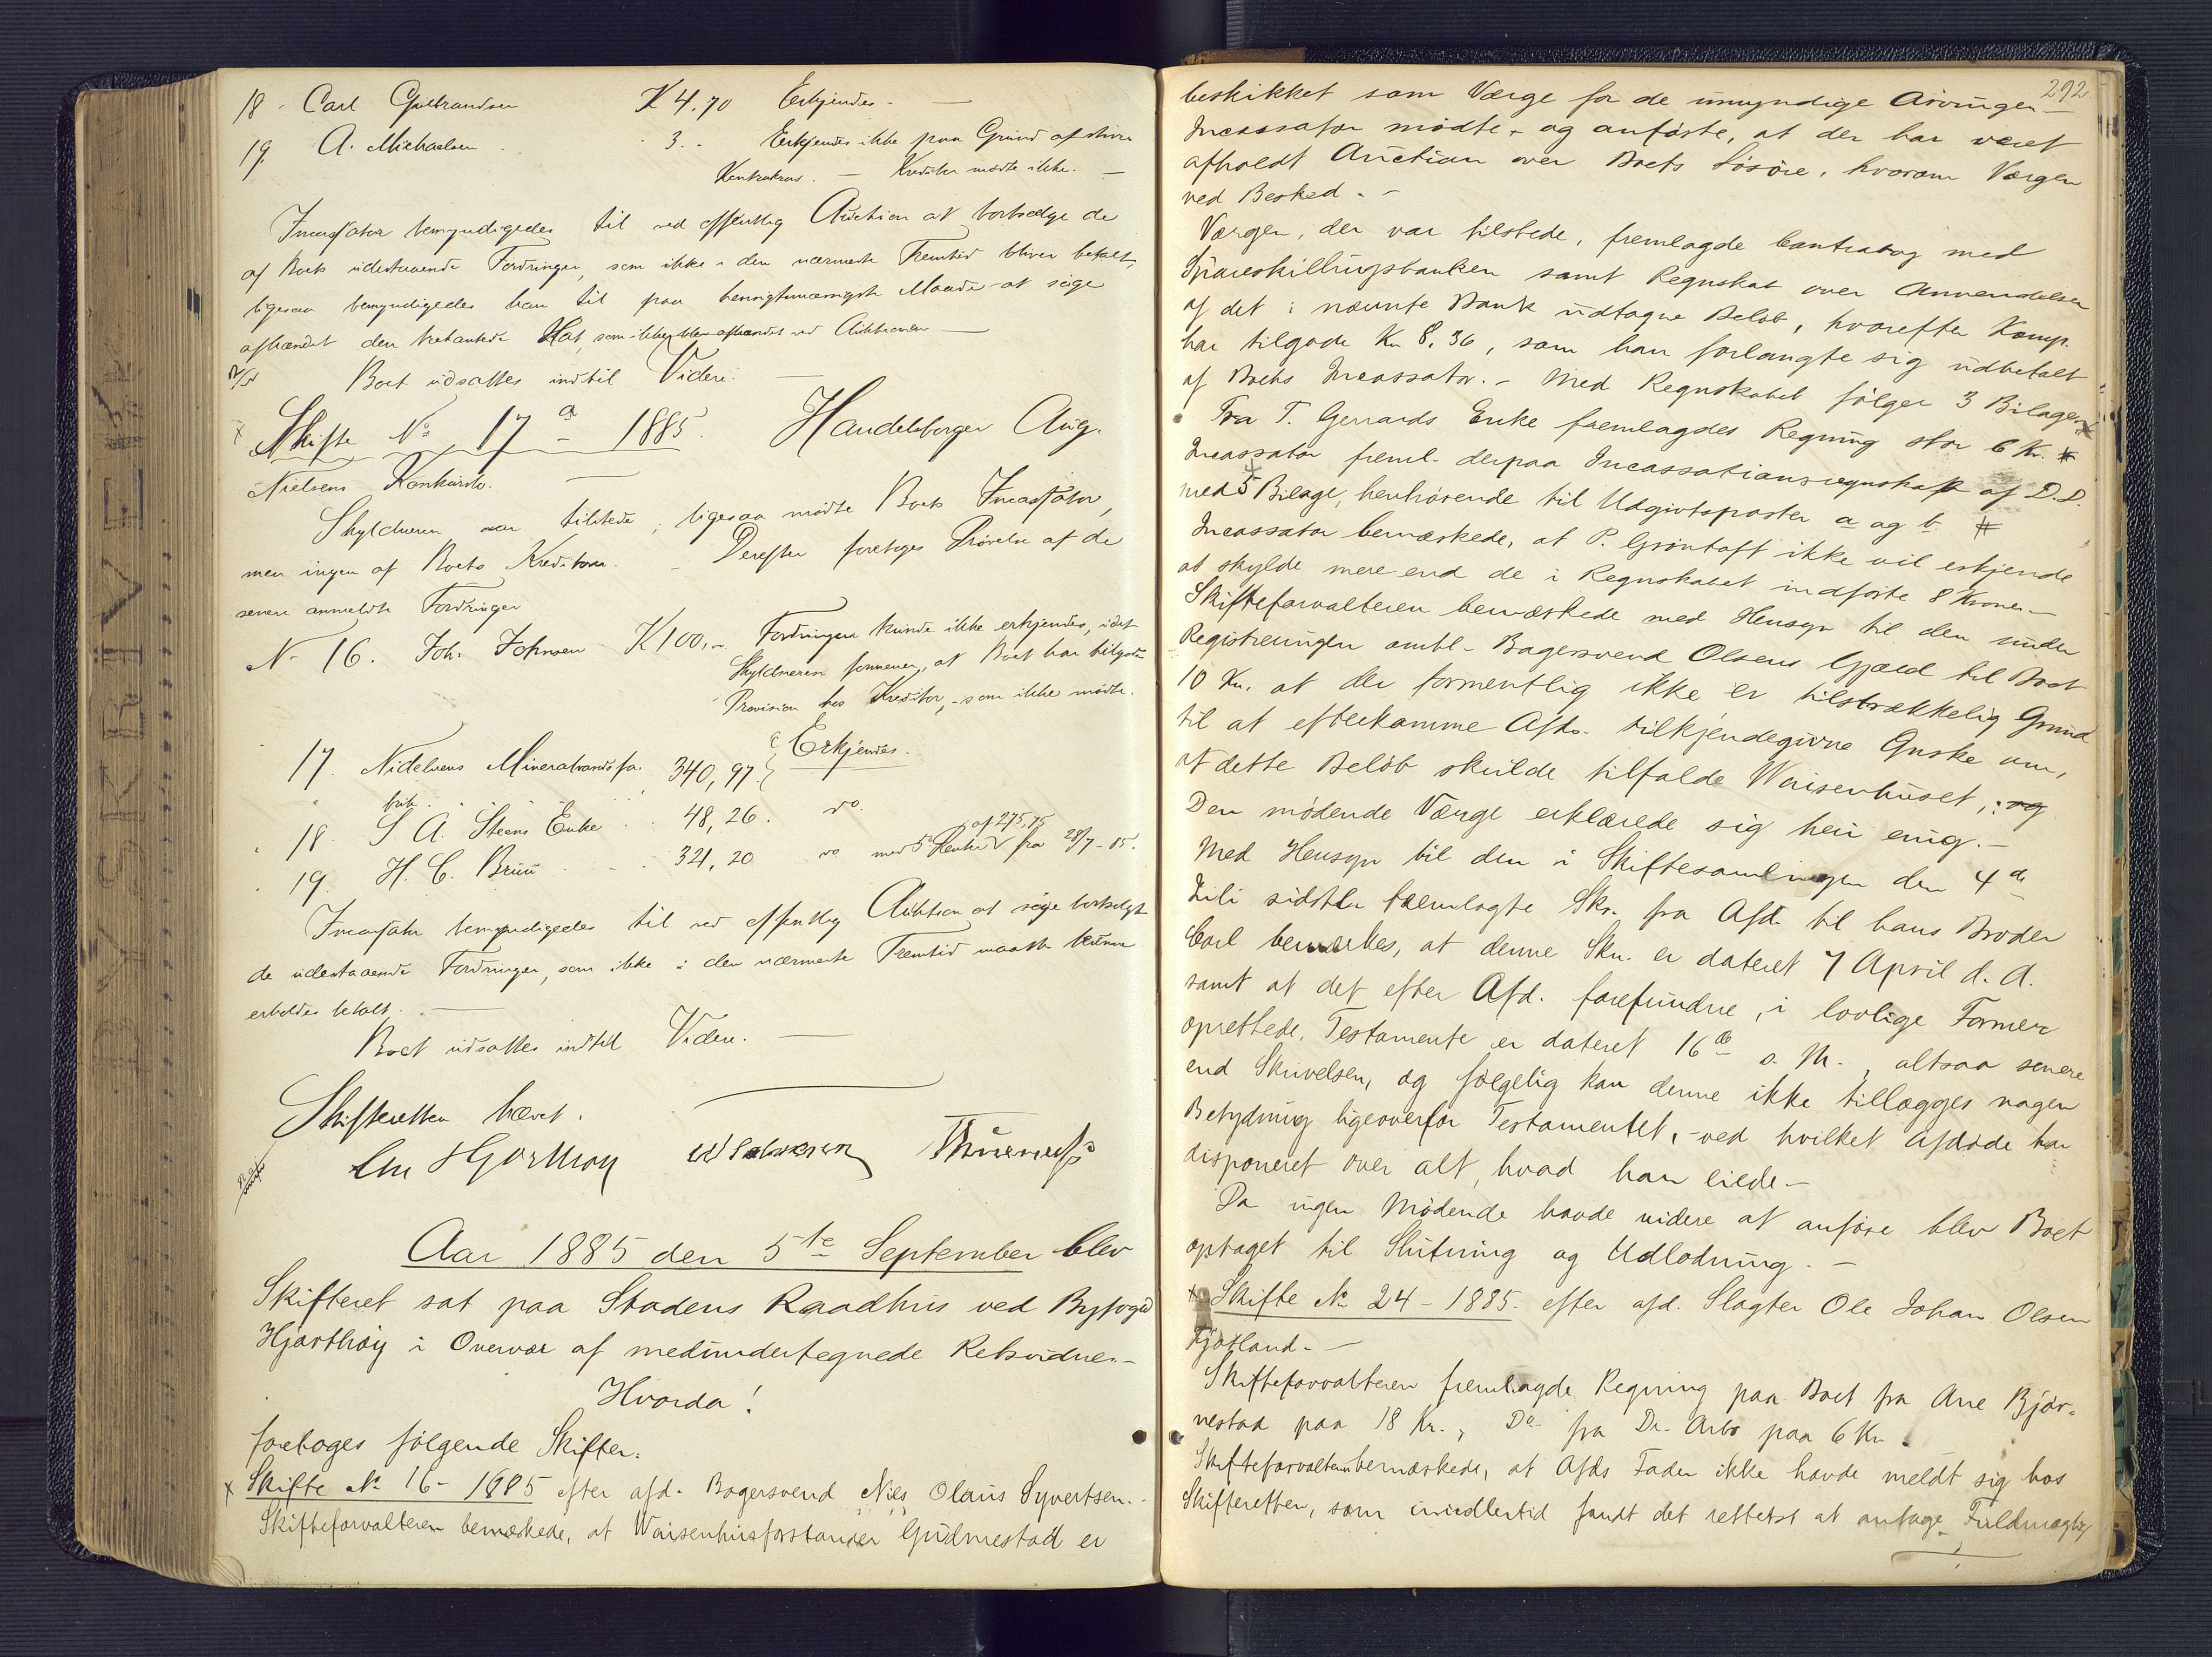 18 Carl Gulbrandsen K 4.70 Erkjendes. —
19 A. Michaelsen 3. . Erkjendes ikke paa Grund af
Kreditor mødte ikke. —
Incassator bemyndigedes til ved offentlig Auction at bortsælge de
af Boets udestaaende Fordringer, som ikke i den nærmeste Fremtid bliver betalt,
ligesaa bemyndigedes han til paa hensigtsmæssigste Maade at søge
afhændet den Hat, som ikke blev afhændet ved Auktionen —
Boet udsattes indtil Videre. —
Skifte No 17a – 1885. Handelsborger Aug.
Nielsens Konkursbo. —
Skyldneren var tilstede, ligesaa mødte Boets Incassator,
men ingen af Boets Kreditorer. – Derefter foretoges Prøvelse af de
senere anmeldte Fordringer
No 16. Joh. Johnsen K 100,„ Fordringen kunde ikke erkjendes, idet
Skyldneren formener, at Boet har tilgode
Provision hos Kreditor, – som ikke mødte.
17. Nidelvens Mineralvandsfa. 340,97. Erkjendes.
brik.
18. S. A. Steens Enke 48,26. do.
19. H. C. Bruu 321,20 do med 5% Rente af 275.75 fra 28/7-85.
Incassator bemyndigedes til ved offentlig Auktion at søge bortsolgt
de udestaaende Fordringer, som ikke i den nærmeste Fremtid maatte kunne
erholdes betalt. —
Boet udsattes indtil Videre. —
Skifteretten hævet.
Hjorthøy
Aar 1885 den 5te September blev
Skifteret sat paa Stadens Raadhus ved Byfoged
Hjorthøy i Overvær af medundertegnede Retsvidner. –
Hvorda!
foretoges følgende Skifter:
x Skifte No 16 – 1885 efter afd. Bagersvend Niels Olaus Syvertsen. –
Skifteforvalteren bemærkede, at Waisenhusforstander Gudmestad er
292.
beskikket som Værge for de umyndige Arvinger –
Incassator mødte – og anførte, at der har været
afholdt Auction over Boets Løsøre, hvorom Værgen
ved Besked. –
Værgen, der var tilstede, fremlagde Contrabog med
Spareskillingsbanken samt Regnskab over Anvendelsen
af det i nævnte Bank udtagne Beløb, hvorefter Komp.
har tilgode Kr 8.36, som han forlangte sig udbetalt
af Boets Incassator. – Med Regnskabet følger 3 Bilager.
Fra T. Gerrards Enke fremlagdes Regning stor 6 Kr. #
Incassator freml. derpaa Incassationsregnskab af D.D.
med 5 Bilage, henhørende til Udgiftsposter a og b #
Incassator bemærkede, at P. Grøntoft ikke vil erkjende
at skylde mere end de i Regnskabet indførte 8 Kroner. –
Skifteforvalteren bemærkede med Hensyn til den under
Registreringen omtl. Bagersvend Olsens Gjæld til Boet
10 Kr. at der formentlig ikke er tilstrækkelig Grund
til at efterkomme Afds. tilkjendegivne Ønske om,
at dette Beløb skulde tilfalde Waisenhuset, : og
Den mødende Værge erklærede sig heri enig. –
Med Hensyn til den i Skiftesamlingen den 4de
Juli sidstl. fremlagte Skr. fra Afd. til hans Broder
Carl bemærkes, at denne Skr. er dateret 7 April d. A.
samt at det efter Afd. forefundne, i lovlige Former
oprettede, Testamente er dateret 16de s. M., altsaa senere
end Skrivelsen, og følgelig kan denne ikke tillægges nogen
Betydning ligeoverfor Testamentet, – ved hvilket Afdøde har
disponeret over alt, hvad han eiede. –
Da ingen Mødende havde videre at anføre blev Boet
optaget til Slutning og Udlodning. –
x Skifte No 24 – 1885 efter afd. Slagter Ole Johan Olsen
Fjotland. –
Skifteforvalteren fremlagde Regning paa Boet fra Ane Bjor-
vestad paa 18 Kr., Do fra Dr. Arbo paa 6 Kr.
Skifteforvalteren bemærkede, at Afds Fader ikke havde meldt sig hos
Skifteretten, som imidlertid fandt det rettest at antage Fuldmægtig